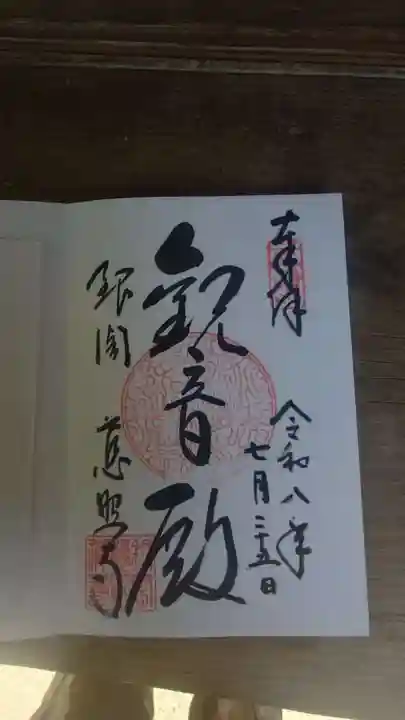 奉拝
令和八年
七月二十五日
観音殿
銀閣 慈照寺